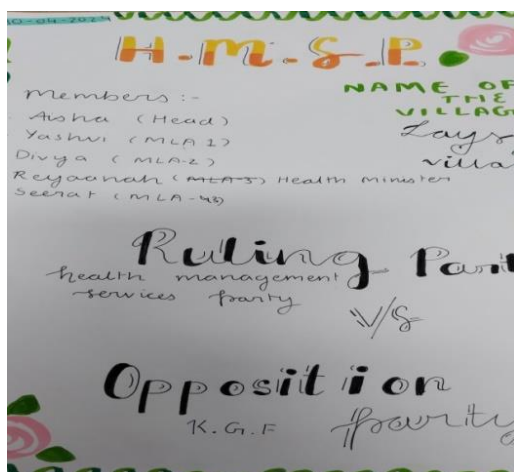 -04-2024
H.M.S.P.
NAME OF
THE
VILLAG
Members :-
Aisha (Head)
Yashvi (MLA-1)
Divya (MLA-2)
Reyaanah (MLA-3) Health Minister
Seerat (MLA-43)
Lays
villa
Ruling Part
health management
services party
V/S
Opposition
K.G.F party